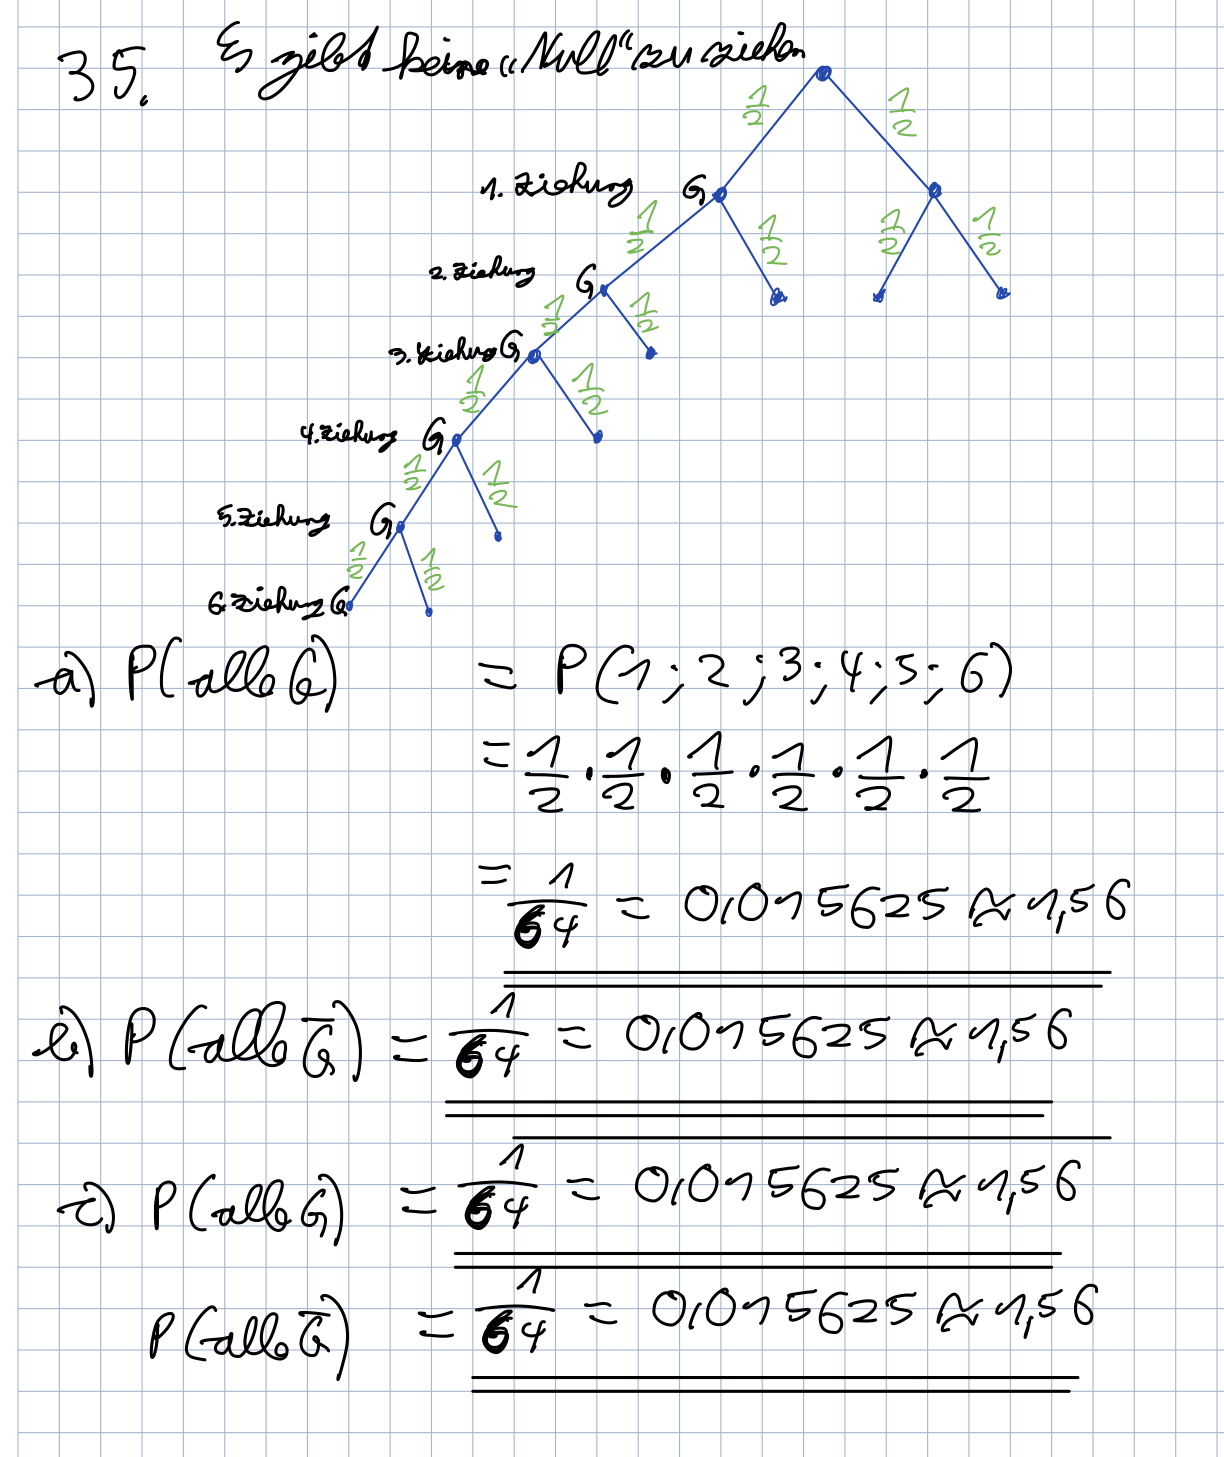 35. Es gibt keine "Null" zu ziehen
1/2 1/2
1. Ziehung G
1/2 1/2 1/2 1/2
2. Ziehung G
1/2 1/2
3. Ziehung G
1/2 1/2
4. Ziehung G
1/2 1/2
5. Ziehung G
1/2 1/2
6. Ziehung G
a) P(alle G) = P(1; 2; 3; 4; 5; 6)
= 1/2 · 1/2 · 1/2 · 1/2 · 1/2 · 1/2
= 1/64 = 0,015625 ≈ 1,56
b) P(alle G̅) = 1/64 = 0,015625 ≈ 1,56
c) P(alle G) = 1/64 = 0,015625 ≈ 1,56
P(alle G̅) = 1/64 = 0,015625 ≈ 1,56